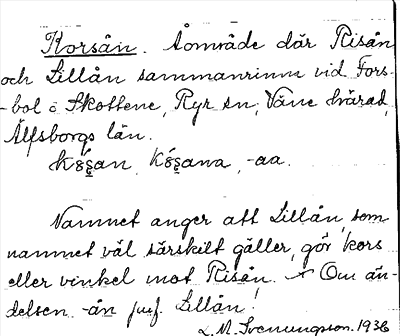 Korsån. Åområde där Risån
och Lillån sammanrinna vid Fors-
-bol i Skottene, Ryr sn, Väne härad,
Älfsborgs län.
Kɷ́s̥an, Kɷ́s̥ana, -aa.
Namnet anger att Lillån, som
namnet väl särskilt gäller, gör kors
eller vinkel mot Risån. Om än-
delsen -ån jmf. Lillån!
L.M. Svenungsson. 1936